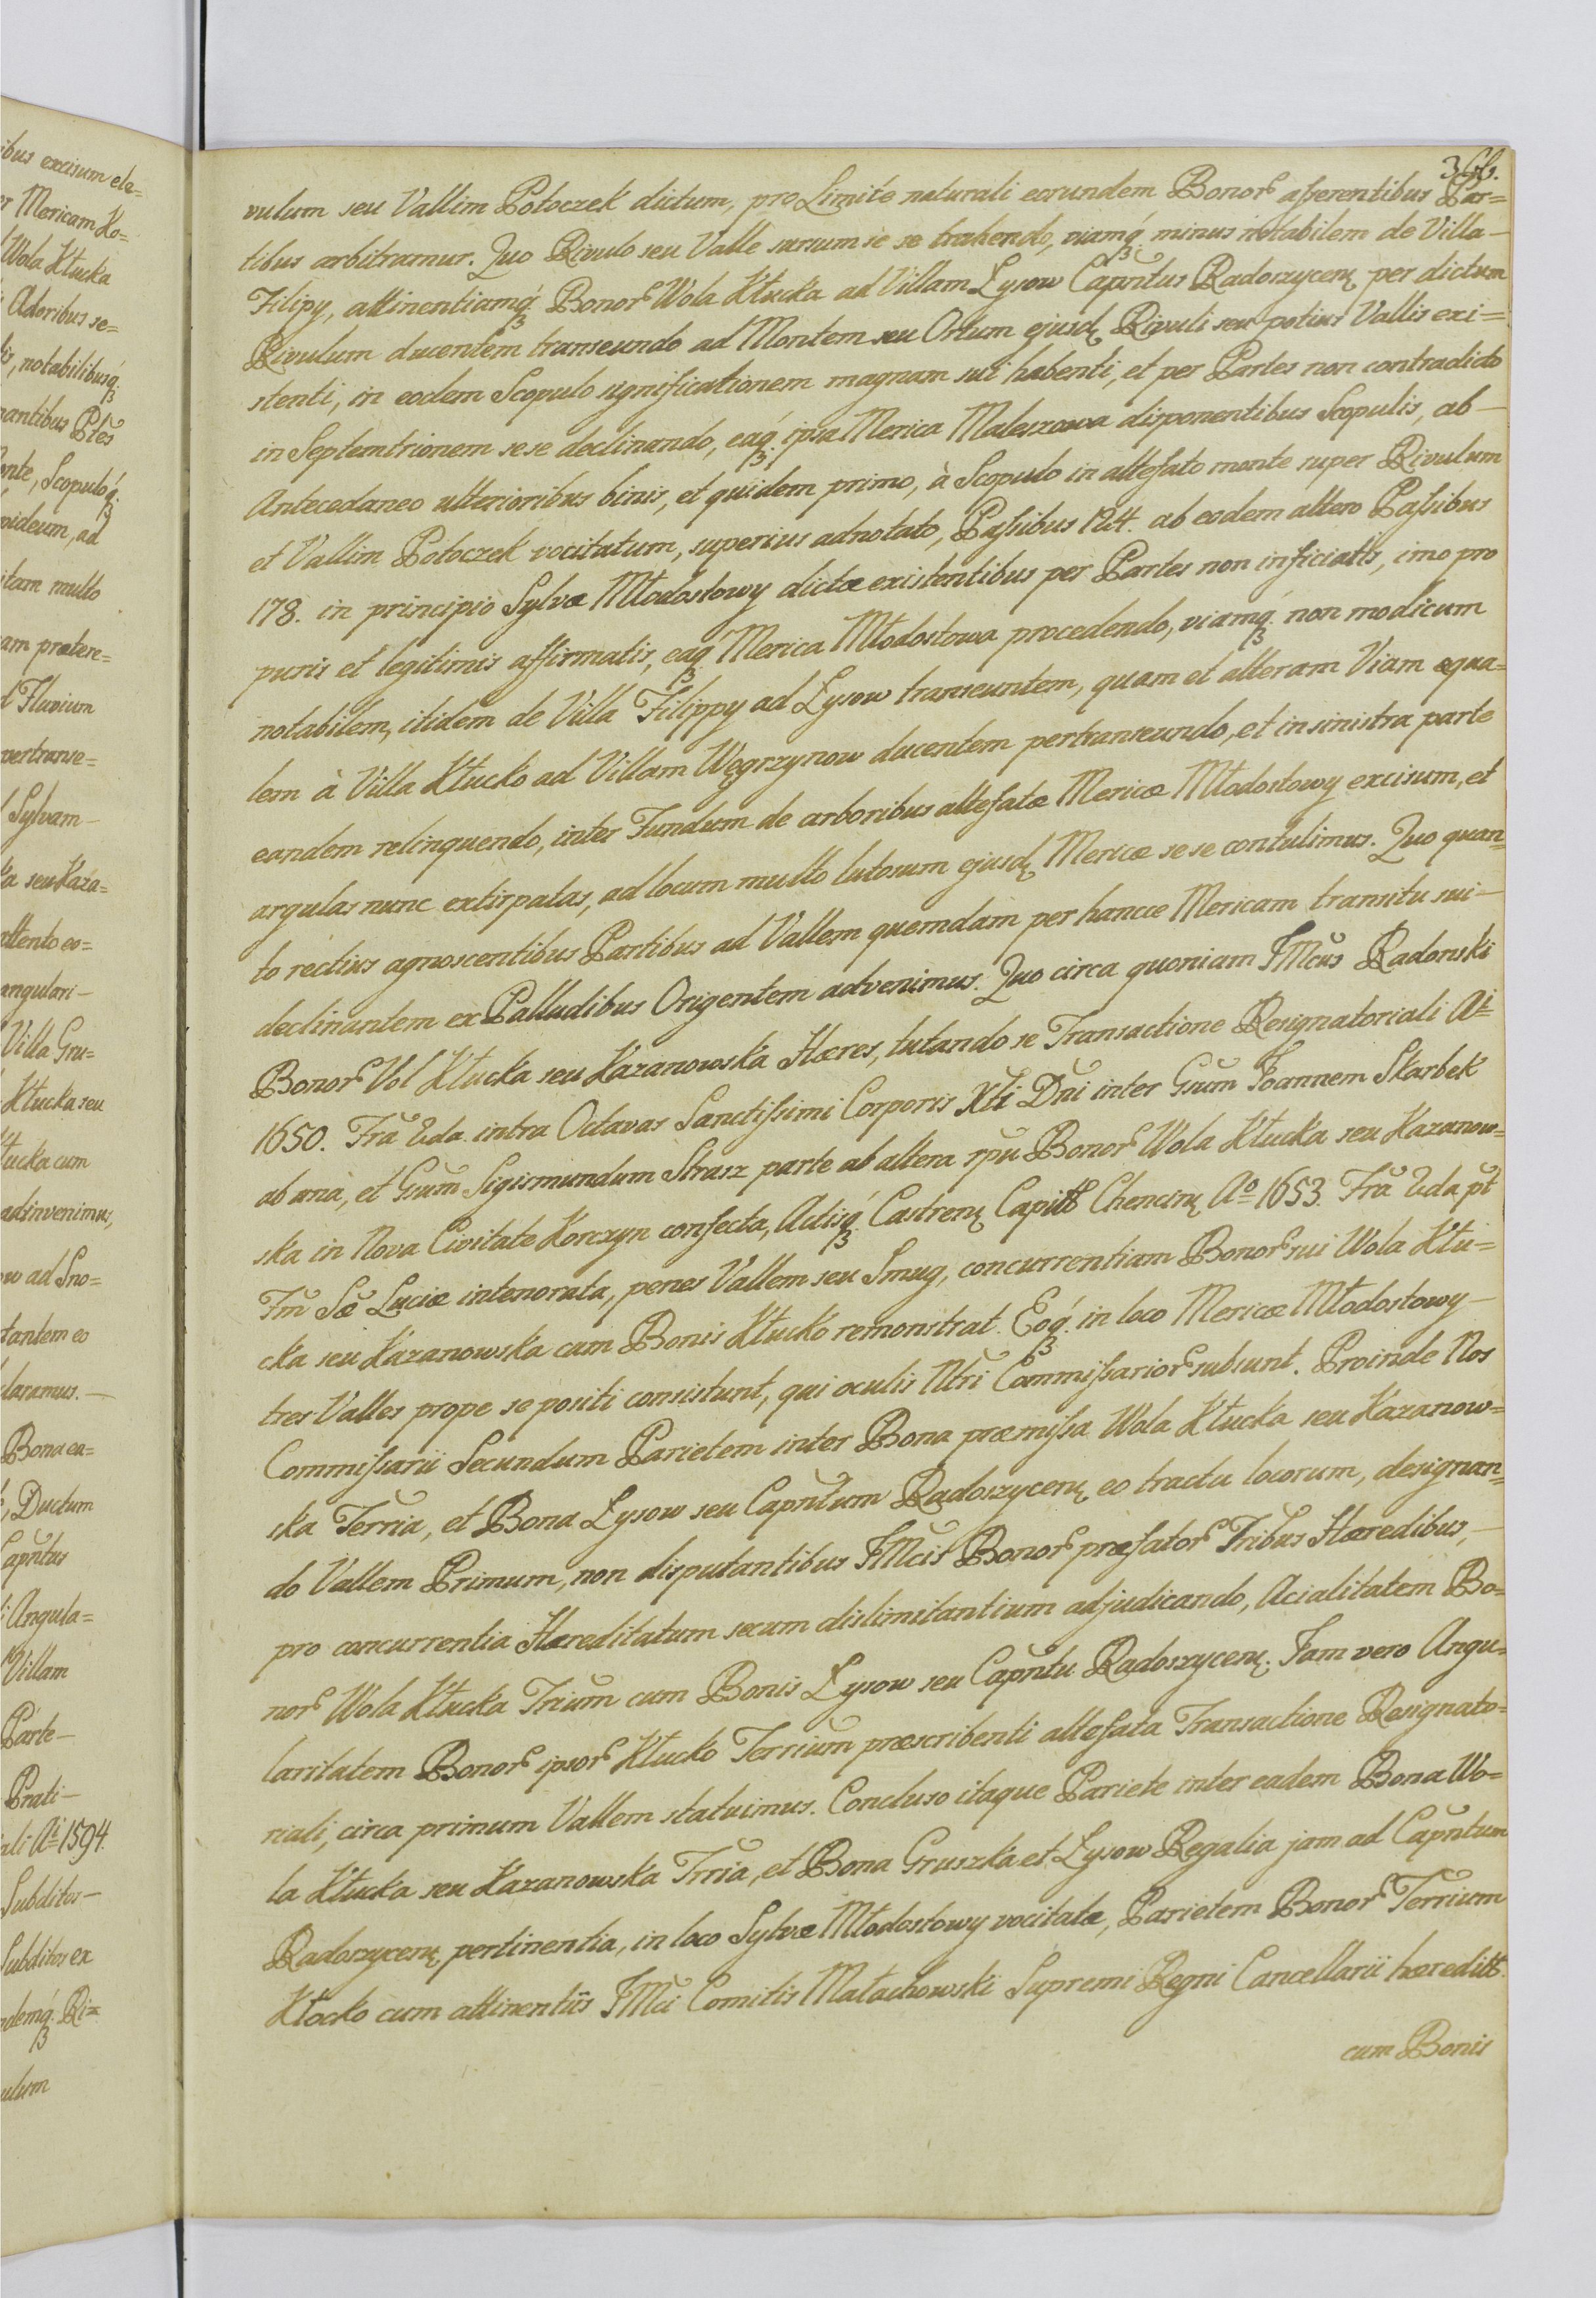 vulum seu Vallim Potoczek dictum, pro Limite naturali eorundem Bonor asserentibus Par=
tibus arbitramur. Quo Rivulo seu Valle sursum se se trahendo, viamq́ minus notabilem de Villa—
Filipy, attinentiamq́ Bonor Wola Kłucka ad Villam Łysow Capñtus Radoszycen per dictum
Rivulum ducentem transeundo ad Montem seu Ortum ejusd Rivuli seu potius Vallis exi=
stenti, in eodem Scopulo significationem magnam sui habenti, et per Partes non contradicto
in Septemtrionem sese declinando, eaq́ ipsa Merica Maleszowa disponentibus Scopulis, ab—
Antecedaneo ulterioribus binis, et quidem primo, à Scopulo in attefato monte super Rivulum
et Vallim Potoczek vocitatum, superius adnotato, Passibus 124. ab eodem altero Passibus
178. in principio Sylvæ Młodostowy dictæ existentibus per Partes non inficiatis, imo pro
puris et legitimis affirmatis, eaq́ Merica Młodostowa procedendo, viamq́ non modicum
notabilem, itidem de Villa Filippy ad Łysow transeuntem, quam et alteram Viam æqua=
lem à Villa Kłucko ad Villam Węgrzynow ducentem pertranseundo, et in sinistra parte
eandem relinquendo, inter Fundum de arboribus attefatæ Mericæ Młodostowy excisum, et
argulas nunc extirpatas, ad locum multo lutosum ejusd Mericæ sese contulimus. Quo quan=
to rectius agnoscentibus Partibus ad Vallem quemdam per hancce Mericam transitu sui—
declinantem ex Palludibus Origentem advenimus. Quo circa quoniam JMcus Radonski
Bonor Vol Kłucka seu Kazanowska Hæres, tutando se Transactione Resignatoriali Ai
1650. Fra 2da intra Octavas Sanctissimi Corporis Xti Dñi inter Gsum Joannem Skarbek
ab una, et Gsum Sigismundum Strasz parte ab altera rpu Bonor Wola Kłucka seu Kazanow=
ska in Nova Civitate Korczyn confecta, Actisq́ Castren Capitt Chencin Ao 1653. Fra 2da pt
Fm Sæ Luciæ intenorata, penes Vallem seu Smug, concurrentiam Bonor sui Wola Kłu=
cka seu Kazanowska cum Bonis Kłucko remonstrat. Eoq́ in loco Mericæ Młodostowy—
tres Valles prope se positi consistunt, qui oculis Ntri Commissarior subsunt. Proinde Nos
Commissarii Secundum Parietem inter Bona præmissa Wola Kłucka seu Kazanow=
ska Terria, et Bona Łysow seu Capñtum Radoszycen eo tractu locorum, designan=
do Vallem Primum, non disputantibus JMcis Bonor præfator Tribus Hæredibus,—
pro concurrentia Hæreditatum secum dislimitantium adjudicando, Acialitatem Bo=
nor Wola Kłucka Trium cum Bonis Łysow seu Capñtu Radoszycen. Jam vero Angu=
laritatem Bonor ipsor Kłucko Terrium præscribenti attefata Transactione Resignato=
riali, circa primum Vallem statuimus. Concluso itaque Pariete inter eadem Bona Wo=
la Kłucka seu Kazanowska Trria, et Bona Gruszka et Łysow Regalia jam ad Capñtum
Radoszycen pertinentia, in loco Sylvæ Młodostowy vocitatæ, Parietem Bonor Terrium
Kłocko cum attinentiis JMci Comitis Małachowski Supremi Regni Cancellarii hæreditt.
cum Bonis